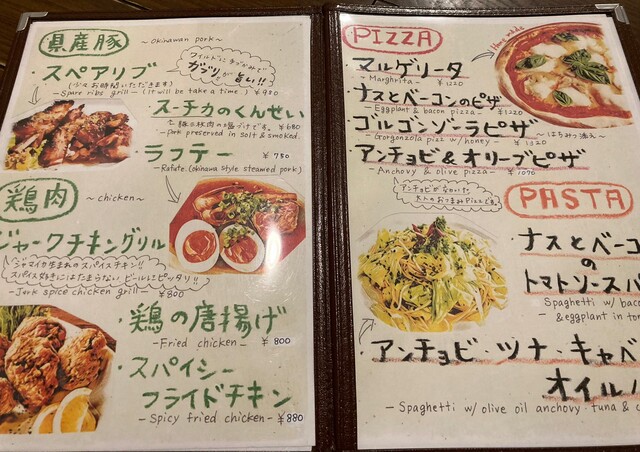 県産豚
~ okinawan pork ~
ワイルドに手づかみで
ガブリが旨い!!
・スペアリブ
(少々お時間いただきます)
- Spare ribs grill - (it will be take a time) ¥980
・スーチカのくんせい
豚三枚肉の塩づけです。 ¥680
- Pork preserved in solt & smoked.
・ラフテー ¥780
- Rafute (okinawa style steamed pork)
鶏肉
~ chicken ~
ジャークチキングリル
ジャマイカ生まれのスパイスチキン!!
スパイス好きにはたまらない ビールにピッタリ!!
- Jerk spice chicken grill - ¥800
・鶏の唐揚げ
- Fried chicken - ¥800
・スパイシー
フライドチキン
- Spicy fried chicken - ¥880
PIZZA
Home made
・マルゲリータ
- Marghrita - ¥1220
・ナスとベーコンのピザ
- Eggplant & bacon pizza - ¥1220
・ゴルゴンゾーラピザ ~はちみつ添え~
- Gorgonzola pizz w/honey - ¥1320
・アンチョビ&オリーブピザ
- Anchovy & olive pizza - ¥1076
アンチョビがきいた
大人のおつまみPizzaです。
PASTA
・ナスとベーコ
の
トマトソースパ
Spaghetti w/ baco
& eggplant in to
・アンチョビ・ツナ・キャベ
オイル
- Spaghetti w/ olive oil anchovy・tuna & c